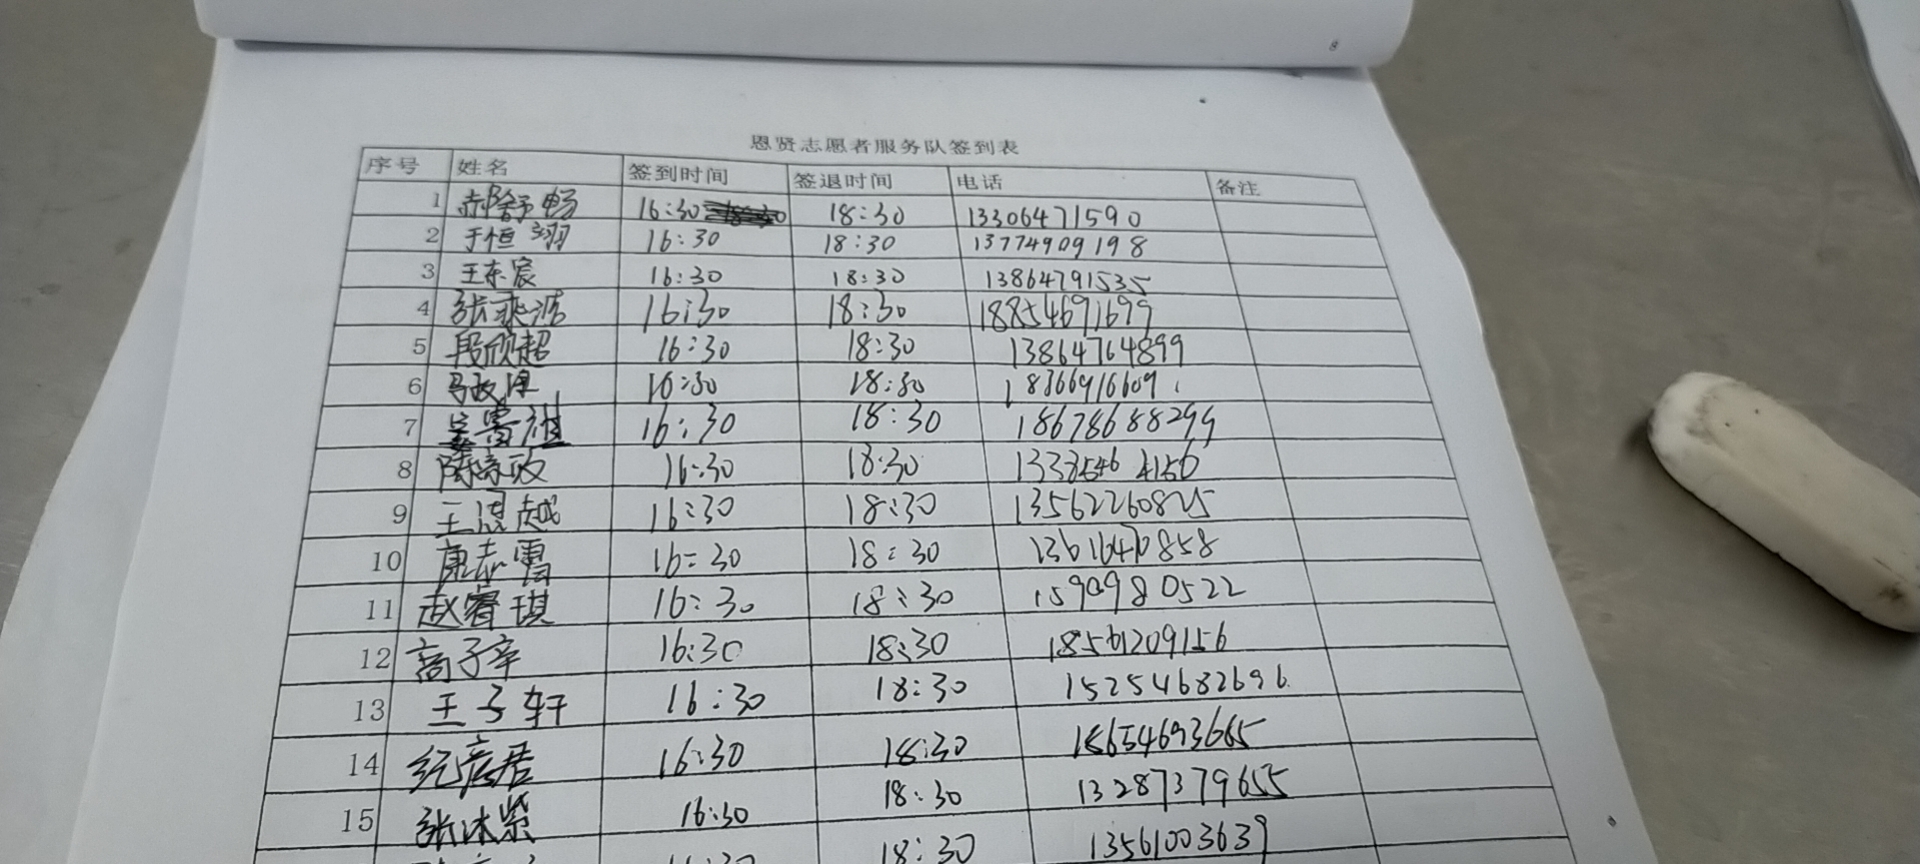 8
恩贤志愿者服务队签到表
序号 姓名 签到时间 签退时间 电话 备注
1 郝舒畅 16:30 18:30 13306471590
2 于恒翊 16:30 18:30 13774909198
3 王东宸 16:30 18:30 13864791535
4 张 16:30 18:30 18854691699
5 段欣超 16:30 18:30 13864764899
6 16:30 18:30 18366916609
7 16:30 18:30 18678688299
8 陈 16:30 18:30 13385464156
9 王思越 16:30 18:30 13562260825
10 康志雷 16:30 18:30
11 赵睿琪 16:30 18:30 15909980522
12 商子幸 16:30 18:30 18561209156
13 王子轩 16:30 18:30 15254682696
14 纪彦君 16:30 18:30 18654693665
15 张沐紫 16:30 18:30 13287379655
16:30 18:30 13561003639